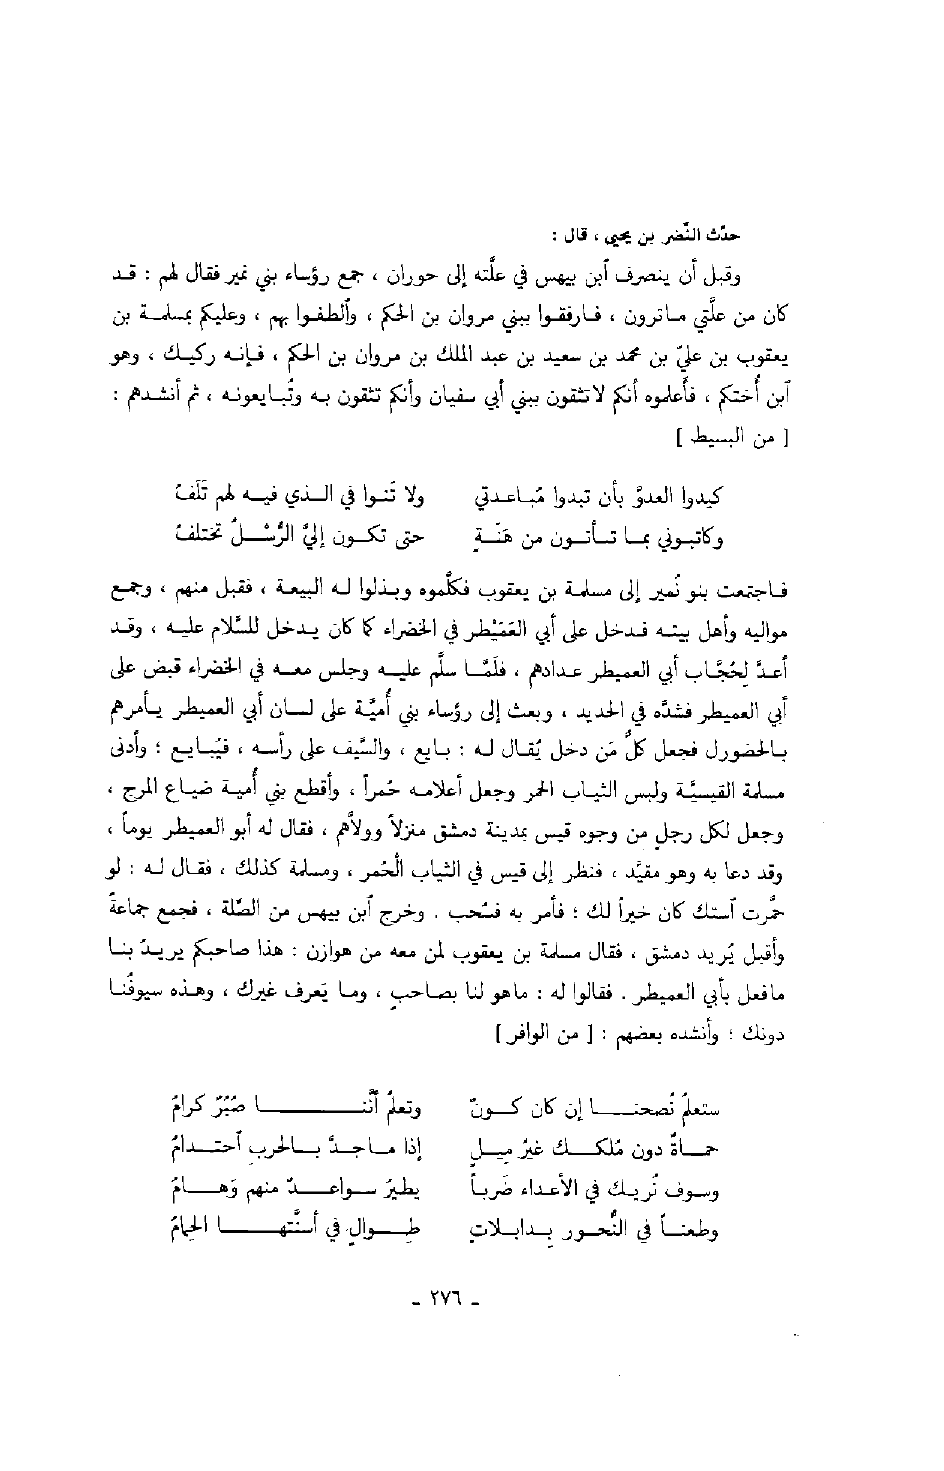 حدَّث النَّضر بن يحيى ، قال :
وقبل أن ينصرف آبن بيهس في علَّته إلى حوران ، جمع رؤساء بني نمير فقال لهم : قد
كان من علَّتي ماترون ، فارفقوا ببني مروان بن الحكم ، وألطفوا بهم ، وعليكم بمسلمة بن
يعقوب بن عليّ بن محمد بن سعيد بن عبد الملك بن مروان بن الحكم ، فإنه ركيك ، وهو
آبن أُختكم ، فأعلموه أنكم لاتثقون ببني أبي سفيان وأنكم تثقون به وتُبايعونه ، ثم أنشدهم :
[ من البسيط ]
كيدوا العدوَّ بأن تبدوا مُباعدتي    ولا تَنوا في الذي فيه لهم تَلَفُ
وكاتبوني بما تأتون من هَنَةٍ    حتى تكون إليَّ الرُّسْلُ تختلفُ
فاجتمعت بنو نُمير إلى مسلمة بن يعقوب فكلَّموه وبذلوا له البيعة ، فقبل منهم ، وجمع
مواليه وأهل بيته فدخل على أبي العَمَيْطر في الخضراء كما كان يدخل للسَّلام عليه ، وقد
أعدَّ لِحُجَّاب أبي العميطر عدادهم ، فلَمَّا سلَّم عليه وجلس معه في الخضراء قبض على
أبي العميطر فشدَّه في الحديد ، وبعث إلى رؤساء بني أُميَّة على لسان أبي العميطر يأمرهم
بالحضورل فجعل كلُّ مَن دخل يُقال له : بايع ، والسَّيف على رأسه ، فيُبايع ؛ وأدنى
مسلمة القيسيَّة ولبس الثياب الحمر وجعل أعلامه حُمراً ، وأقطع بني أمية ضياع المرج ،
وجعل لكل رجل من وجوه قيس بمدينة دمشق منزلاً وولاَّهم ، فقال له أبو العميطر يوماً ،
وقد دعا به وهو مقيَّد ، فنظر إلى قيس في الثياب الْحُمر ، ومسلمة كذلك ، فقال له : لو
حمَّرت آستك كان خيراً لك ؛ فأمر به فسُحب . وخرج آبن بيهس من العلَّة ، فجمع جماعةً
وأقبل يُريد دمشق ، فقال مسلمة بن يعقوب لمن معه من هوازن : هذا صاحبكم يريدُ بنا
مافعل بأبي العميطر . فقالوا له : ماهو لنا بصاحبٍ ، وما يَعرف غيرك ، وهذه سيوفُنا
دونك ؛ وأنشده بعضهم : [ من الوافر ]
ستعلمُ نُصحنا إن كان كونٌ    وتعلمُ أنَّنا صُبُرٌ كرامُ
حماةٌ دون مُلكك غيرُ ميلٍ    إذا ماجدَّ بالحربِ آحتدامُ
وسوف نُريك في الأعداء ضَرباً    يطيرُ سواعدٌ منهم وَهامُ
وطعناً في النُّحور بذابلاتٍ    طوالٍ في أسنَّتها الحِمامُ
- ٢٧٦ -